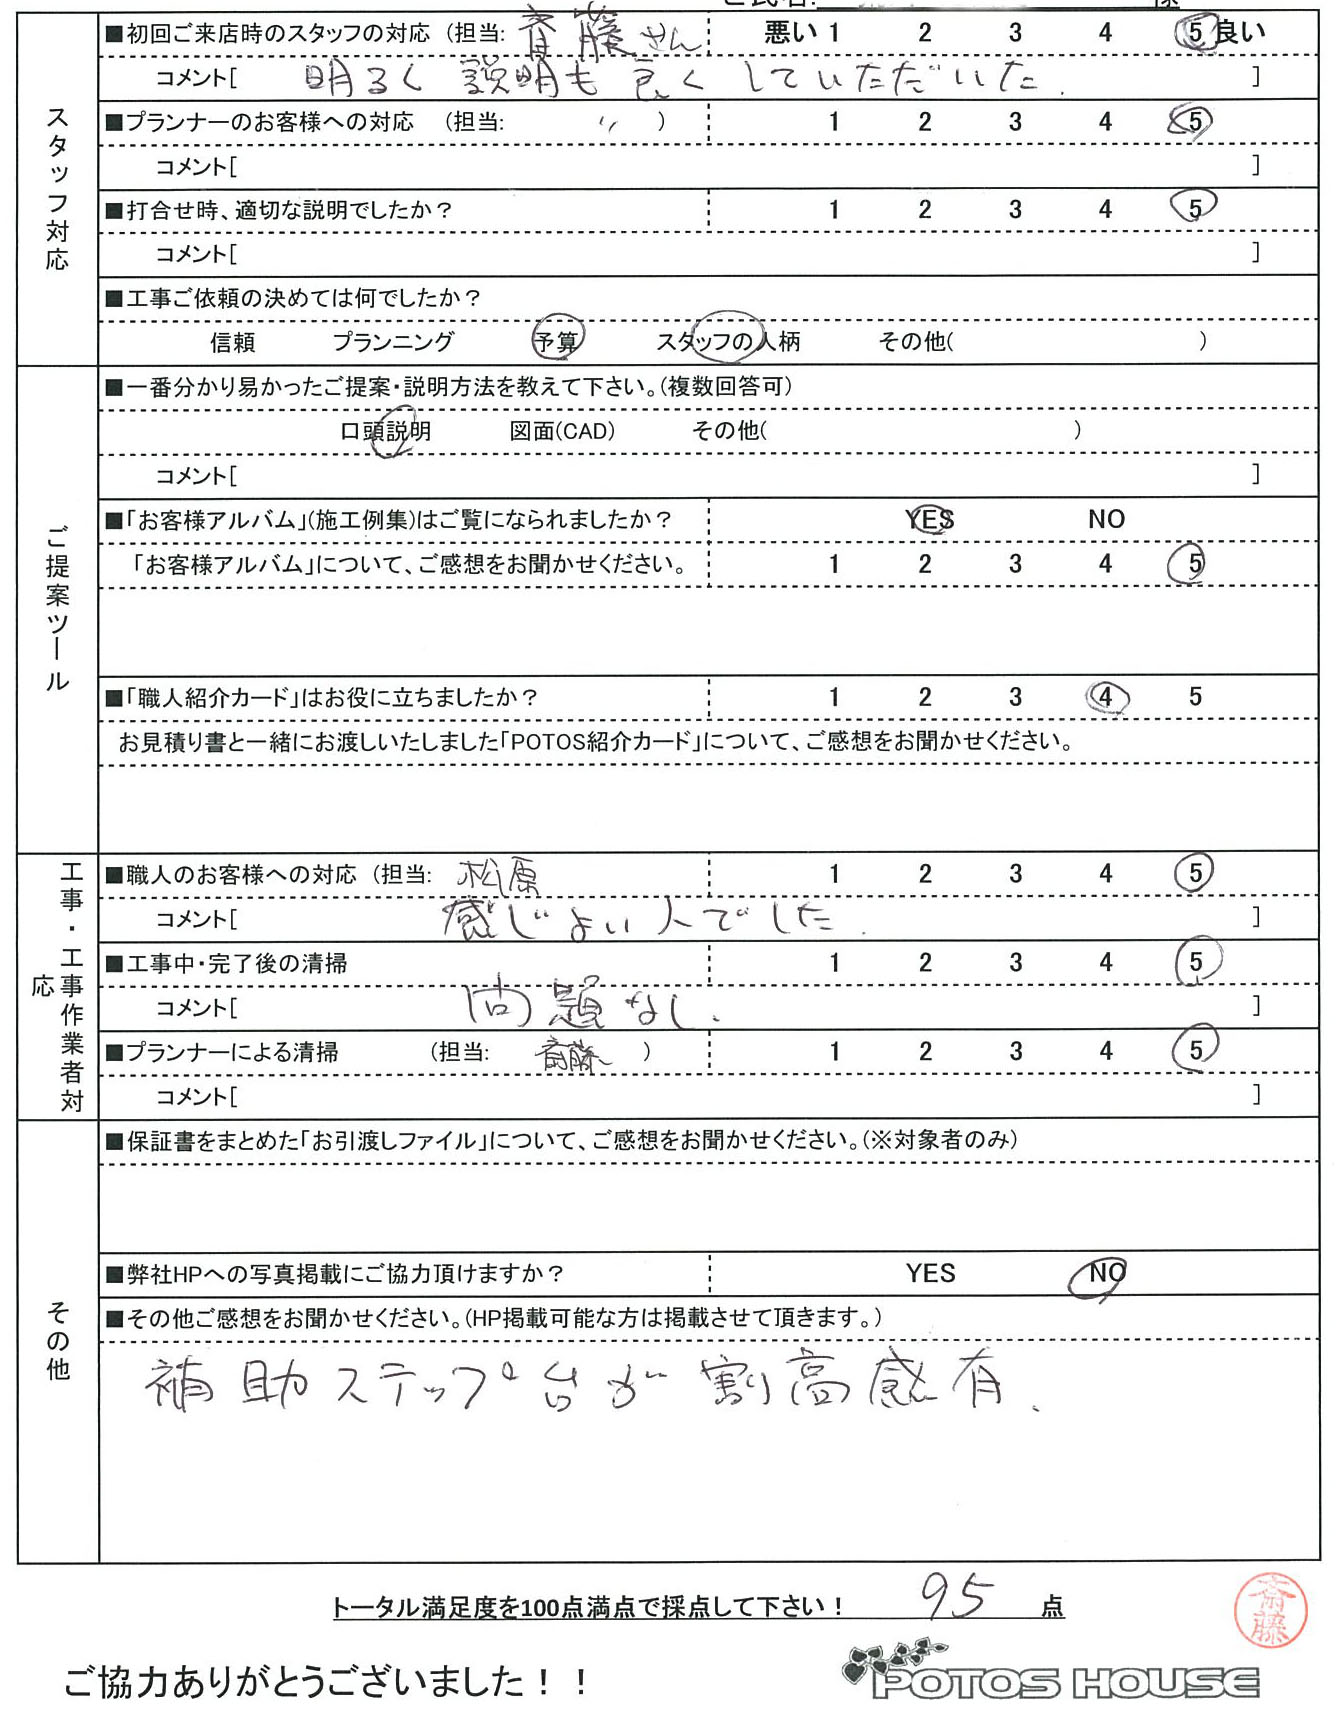 ■初回ご来店時のスタッフの対応 (担当: 斉藤さん 悪い 1 2 3 4 5 良い
コメント[ 明るく 説明も 良く していただいた. ]
スタッフ対応
■プランナーのお客様への対応 (担当: 〃 ) 1 2 3 4 5
コメント[ ]
■打合せ時、適切な説明でしたか? 1 2 3 4 5
コメント[ ]
■工事ご依頼の決めては何でしたか?
信頼 プランニング 予算 スタッフの人柄 その他( )
ご提案ツール
■一番分かり易かったご提案・説明方法を教えて下さい。(複数回答可)
口頭説明 図面(CAD) その他( )
コメント[ ]
■「お客様アルバム」(施工例集)はご覧になられましたか? YES NO
「お客様アルバム」について、ご感想をお聞かせください。 1 2 3 4 5
■「職人紹介カード」はお役に立ちましたか? 1 2 3 4 5
お見積り書と一緒にお渡しいたしました「POTOS紹介カード」について、ご感想をお聞かせください。
工事・工事作業者対応
■職人のお客様への対応 (担当: 松原 1 2 3 4 5
コメント[ 感じよい人でした. ]
■工事中・完了後の清掃 1 2 3 4 5
コメント[ 問題なし. ]
■プランナーによる清掃 (担当: 斎藤 ) 1 2 3 4 5
コメント[ ]
その他
■保証書をまとめた「お引渡しファイル」について、ご感想をお聞かせください。(※対象者のみ)
■弊社HPへの写真掲載にご協力頂けますか? YES NO
■その他ご感想をお聞かせください。(HP掲載可能な方は掲載させて頂きます。)
補助ステップ台が割高感有.
トータル満足度を100点満点で採点して下さい! 95 点
斎藤
ご協力ありがとうございました!!
POTOS HOUSE